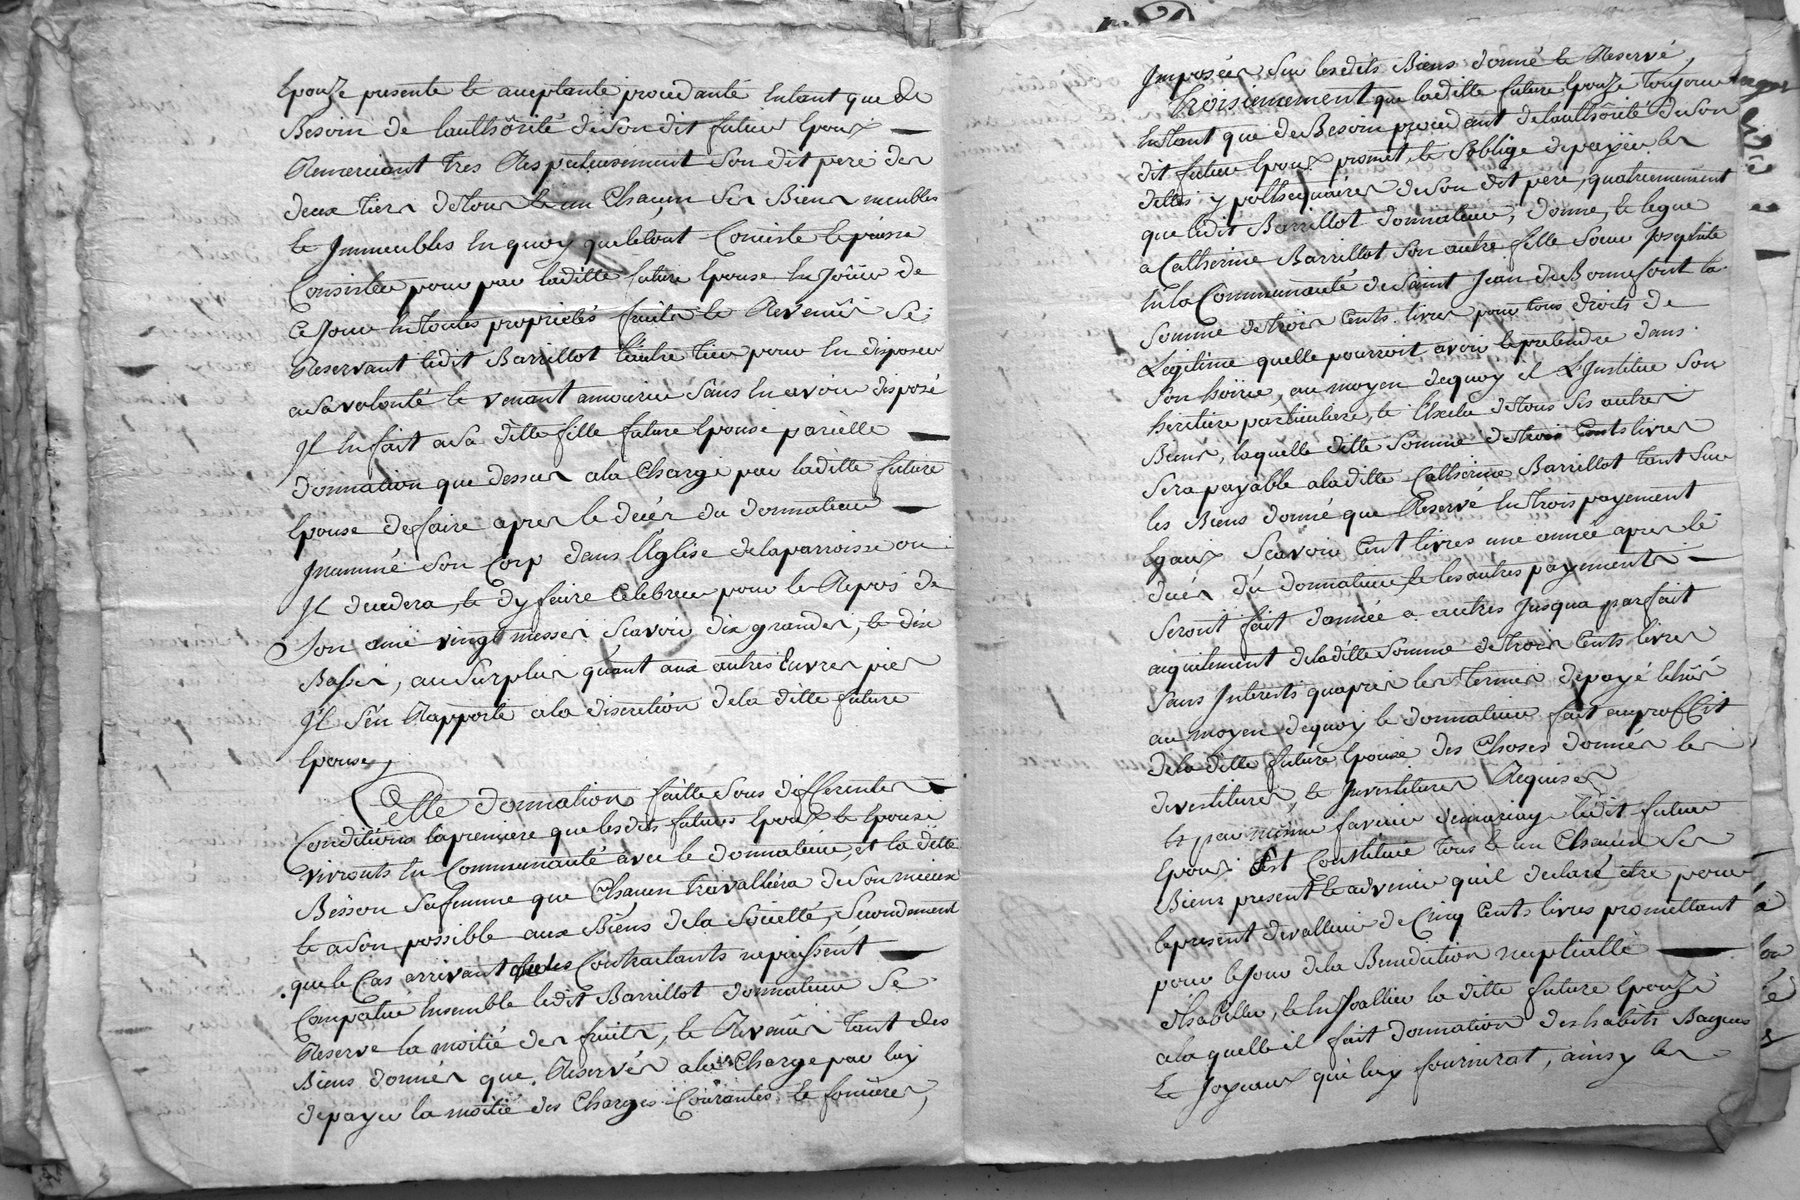 Epouze presente et aceptante procedante Entant que de
Besoin de lauthôrité de son dit futeur Epoux
Remerciant tres Respectueusement Son dit pere des
deux tiers de tous et un Chacun Ses Biens meubles
et Jmmeubles En quoy quele tout Consiste et puisse
Consister pour par laditte future Epouse En Joüir de
Ce Jour En toutes proprietés fruits et Revenûs Se
Reservant ledit Barrillot Lautre tier pour En disposer
asa volonté et venant amourir Sans En avoir disposé
Jl En fait asa ditte fille future Epouse parielle
donnation que dessus ala Charge par laditte future
Epouse defaire apres le décés du donnateur
Jnummé Son Corp dans l'Eglise delaparroisse ou
Jl decedera, et dy faire Celebrer pour le Repos de
Son ame vingt messes Scavoir dix grandes, et dix
Basses, au Surplus quant aux autres Euvres pies
Jl S'en Rapporte ala discretion dela ditte future
Epouse,
Cette donnation faitte Sous differentes
Conditions lapremiere que lesdits futurs Epoux et Epouse
vivronts En Communauté avec le donnateur, et la ditte
Besson Safemme que Chacun travalliera de Son mieux
et a Son possible aux Biens dela Societté, Secondement
que le Cas arrivant que les Contraitants nepuissent
Compatir Ensemble ledit Barrillot donnateur Se
Reserve la moitié des fruits, et Revenûs tant des
Biens donnés que Reservés ala Charge par luy
depayer la moitié des Charges Courantes et foncieres,
Jmposées Sur lesdits Biens donné et Reservé,
Troisiemement que laditte future Epouze toujours
Entant que de Besoin procedant de lauthôrité de Son
dit futeur Epoux promet, et Soblige de payer les
dettes ypothequaires de Son dit pere, quatriemement
que ledit Barrillot donnateur, donne, et legue
a Catherine Barrillot Son autre fille Soeur Josephite
En la Communauté de Saint Jean de Bonnefont la
Somme de trois Cents livres pour tous droits de
Legitime quelle pourroit avoir et pretendre dans
Son hoirie, au moyen dequoy il L'Jnstitue Son
heritiere particuliere, et L'Exclu de tous Ses autres
Biens, laquelle ditte Somme de trois Cents livres
Sera payable aladitte Catherine Barrillot tant Sur
les Biens donné que Reservé En trois payement
Egaux, Scavoir Cent livres une année apres le
décés du donnateur, et les autres payements
Seront fait dannée a autres Jusqua parfait
aquitement deladitte Somme de trois Cents livres
Sans Jnterests quapres les termes depayé Echûs
au moyen dequoy le donnateur fait auproffit
dela ditte future Epouse des Choses donnés les
devestitures, et Jnvestitures Requises
Et par même faveur demariage ledit futeur
Epoux Sest Constitué tous et un Chacun Ses
Biens present et advenir quil declare etre pour
lepresent devalleur de Cinq Cents livres promettant
pour le Jour dela Benediction nuptialle
dhabiller, et EnJoallier la ditte future Epouze
ala quelle il fait donnation des habits Bagues
Et Joyeaux que luy fournirat, ainsy les